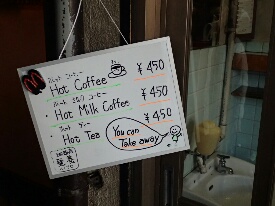 ホット コーヒー
Hot Coffee ¥450
ホット ミルク コーヒー
Hot Milk Coffee ¥450
ホット ティー
Hot Tea ¥450
You can
Take away